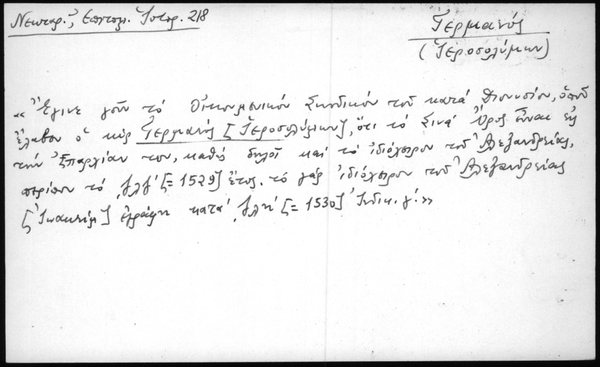 Νεκταρ., Επιτομ. Ἱστορ. 218
Γερμανός
(Ἱεροσολύμων)
« Ἔγινε γοῦν τὸ Οἰκουμενικόν Συνοδικόν τοῦ κατά Διονυσίου, ὁποῦ
ἔλαβεν ὁ κύρ Γερμανός [Ἱεροσολύμων], ὅτι τὸ Σινᾶ Ὄρος εἶναι εἰς
τὴν Ἐπαρχίαν του, καθώς δηλοῖ καὶ τὸ ἰδιόχειρον τοῦ Ἀλεξανδρείας,
περίπου τὸ ͵ζλζʹ [= 1529] ἔτος. τὸ γάρ ἰδιόχειρον τοῦ Ἀλεξανδρείας
[Ἰωακείμ] ἐγράφη κατά ͵ζληʹ [= 1530] Ἰνδικ. γʹ. »